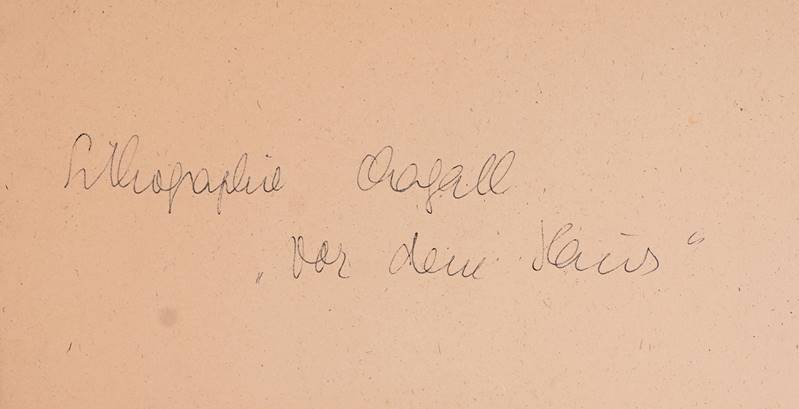 Lithographie Chagall
„Vor dem Haus“